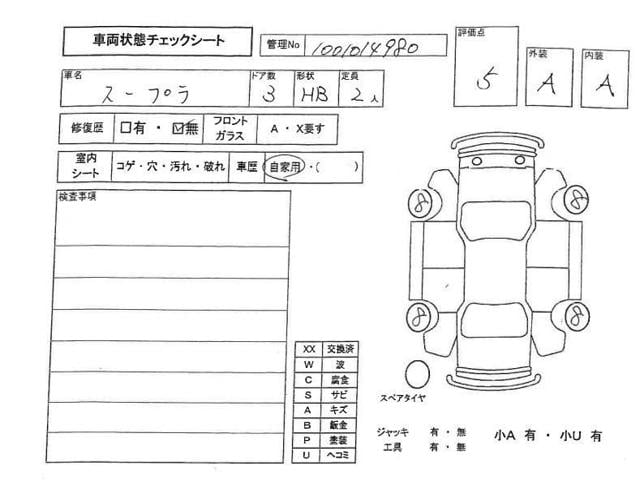 車両状態チェックシート
管理No 1001014980
評価点 5
外装 A
内装 A
車名 スープラ
ドア数 3
形状 HB
定員 2人
修復歴 □有・☑無
フロントガラス A・X要す
室内シート コゲ・穴・汚れ・破れ
車歴 自家用・( )
検査事項
8 8
8 8
XX 交換済
W 波
C 腐食
S サビ
A キズ
B 鈑金
P 塗装
U ヘコミ
スペアタイヤ
ジャッキ 有・無
工具 有・無
小A 有・小U 有